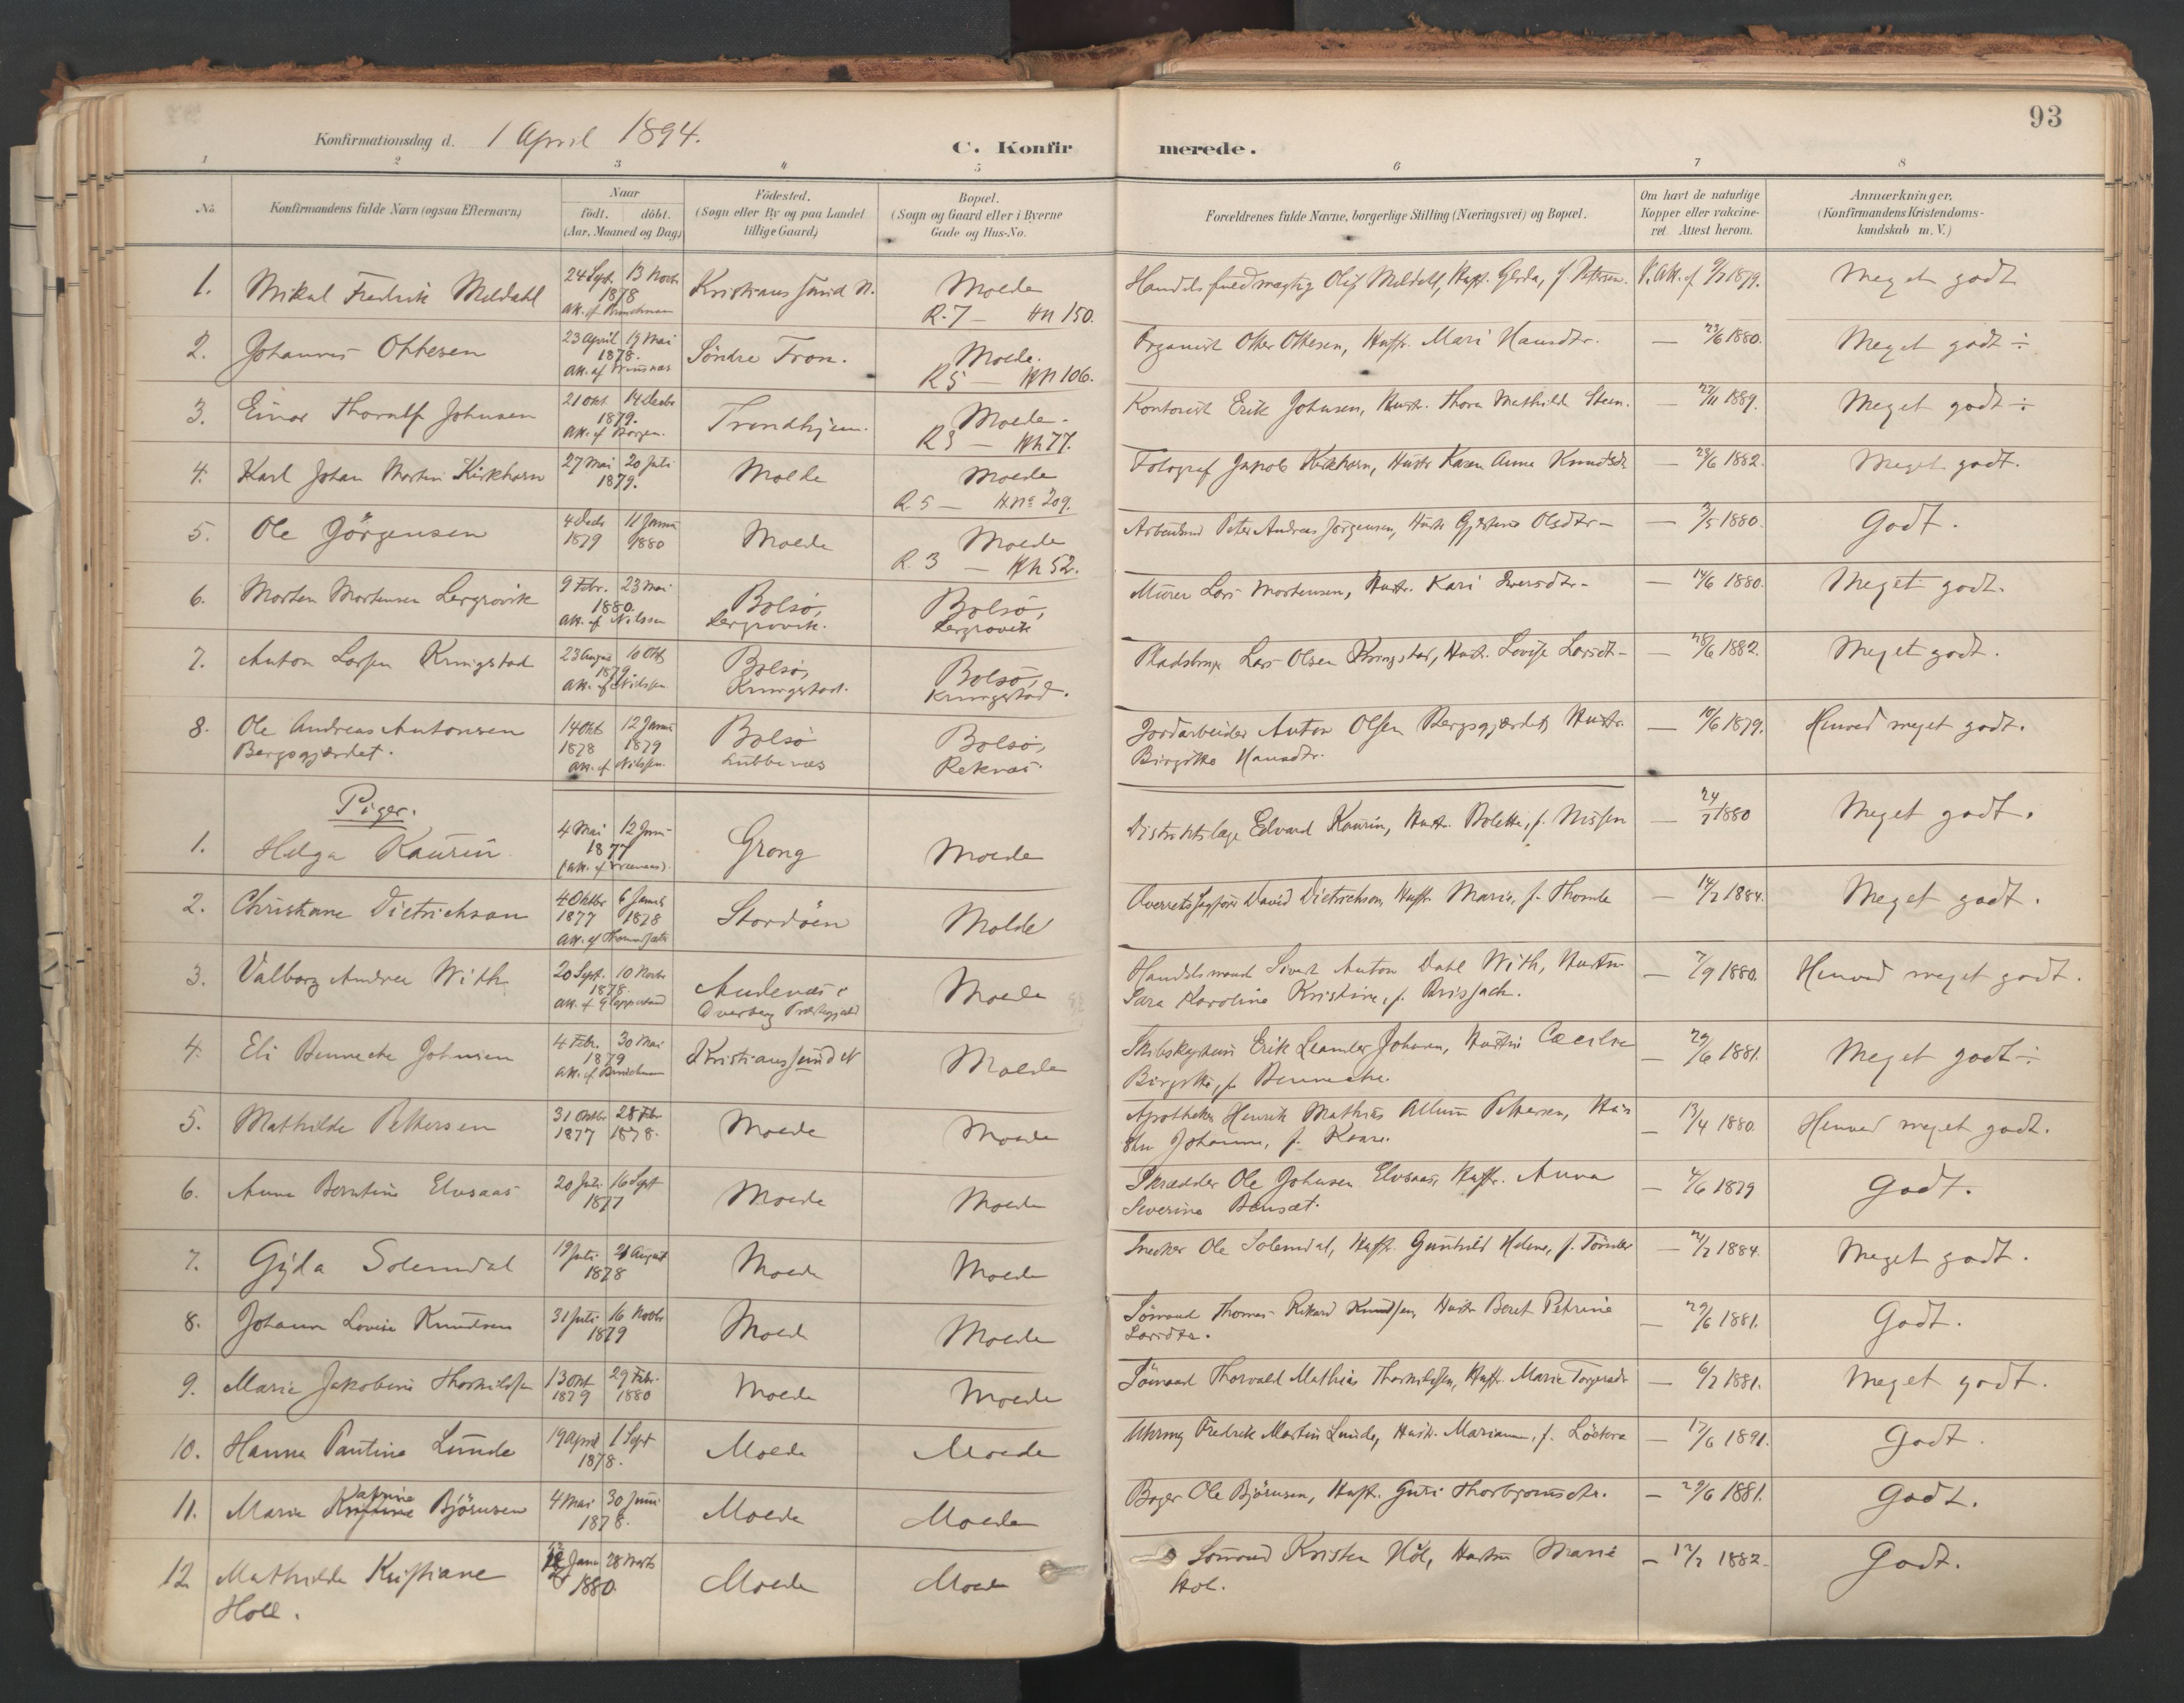 93
Konfirmationsdag d. 1 April 1894.
C. Konfirmerede.
1 2 3 4 5 6 7 8
No.
Konfirmandens fulde Navn (ogsaa Efternavn)
Naar født. døbt. (Aar, Maaned og Dag)
Födested. (Sogn eller By og paa Landet tillige Gaard)
Bopæl. (Sogn og Gaard eller i Byerne Gade og Hus-No.
Forældrenes fulde Navne, borgerlige Stilling (Næringsvei) og Bopæl.
Om havt de naturlige Kopper eller vakcineret. Attest herom.
Anmærkninger. (Konfirmandens Kristendomskundskab m. V.)
1. Mikal Fredrik Meldahl 24 Sept. 13 Novbr 1878 Kristianssund N. Molde R. 7 — HN 150. Handelsfuldmægtig Oluf Meldahl, Hustr. Gerda, f. Petersen. V. Att. af 9/7 1879. Meget godt
2. Johannes Ottesen 23 April 19 Mai 1878. Söndre Fron. Molde. R 5 — HN 106. Organist Otter Ottesen, Hustr. Mari Hansdtr. — 23/6 1880. Meget godt ÷
3. Einar Thoralf Johnsen 21 Okt 14 Decbr 1879. Att. af Borgen. Trondhjem. Molde. R 3 — HN 77. Kontorist Erik Johnsen, Hustr. Thora Mathilde Steen. — 27/11 1889. Meget godt ÷
4. Karl Johan Morten Kirkhorn 27 Mai 20 Juli 1879. Molde Molde R. 5 — H.No 209. Fotograf Jakob Kirkhorn, Hustr Karen Anna Knudsdr — 28/6 1882. Meget godt.
5. Ole Jörgensen 4 Decb 1879 11 Janu 1880 Molde Molde R. 3 — HN 52. Peter Andreas Jörgensen, Hustr Gjertine Olsdtr — 3/5 1880. Godt.
6. Morten Mortensen Lergrovik 9 Febr. 23 Mai 1880. Att. af Nilssen Bolsö, Lergrovik. Bolsö, Lergrovik Murer Lars Mortensen, Hustr. Kari Iversdtr — 14/6 1880. Meget godt.
7. Anton Larsen Kringstad 23 August 10 Okt 1879. Att. af Nilssen Bolsö, Kringstad. Bolsö, Kringstad. Lars Olsen Kringstad, Hustr. Lovise Larsdt — 28/6 1882. Meget godt.
8. Ole Andreas Antonsen Bergsgjærdet. 14 Okt 1878 12 Janu 1879 Att. af Nilssen. Bolsö Lubbenæs Bolsö, Reknæs. Jordarbeider Anton Olsen Bergsgjærdet, Hustr. Birgitte Hansdtr. — 10/6 1879. Henved meget godt.
Piger.
1. Helga Kaurin 4 Mai 12 Juni 1877 Grong Molde Distriktslæge Edvard Kaurin, Hustr. Bolette, f. Nissen — 24/7 1880 Meget godt.
2. Christiane Dietrichson 4 Oktbr 1877 6 Januar 1878 Stordöen Molde Overretssagförer David Dietrichson, Hustr. Marie, f. Thomle — 14/7 1884. Meget godt.
3. Valborg Andrea With 20 Sept. 10 Novbr 1878. Andenæs i Molde Handelsmand Sivert Anton Dahl With, Hustru Sara Karoline Kristine, f. — 7/9 1880. Henved meget godt.
4. Eli Bennecke Johnsen 4 Febr. 30 Mai 1879 Kristianssund N Molde Erik Leander Johnsen, Hustru Cæcilie Birgitte, f. Bennecke. — 29/6 1881. Meget godt ÷
5. Mathilde Pettersen 31 Oktbr 1877 28 Febr 1878. Molde Molde Apotheker Henrik Mathias Allum Pettersen, Hustru Johanne, f. — 13/4 1880. Henved meget godt.
6. Anna Berntine Elvsaas 20 Juli 16 Sept 1877 Molde Molde Skrædder Ole Johnsen Elvsaas, Hustr. Anna Severine Bensæt. — 4/6 1879 Godt.
7. Gyda Solemdal 19 Juli 21 August 1878 Molde Molde Snedker Ole Solemdal, Hustr. Gunhild Helene, f. Tönder — 21/7 1884. Meget godt.
8. Johanna Lovise Knudsen 31 Juli 16 Novbr 1879 Molde Molde Sömand Thomas Rikard Knudsen, Hustr Beret Petrine Larsdtr. — 29/6 1881. Godt.
9. Marie Jakobine Thorkildsen 13 Okt 1879 29 Febr. 1880 Molde Molde Sömand Thorvald Mathias Thorkildsen, Hustr. Marie Torgersdr — 6/7 1881. Meget godt.
10. Hanna Pauline Lunde 19 April 1 Sept 1878. Molde Molde Fredrik Martin Lunde, Hustr. Marianne, f. — 17/6 1891. Godt.
11. Marie Katrine Björnsen 4 Mai 30 Juni 1878. Molde Molde Bager Ole Björnsen, Hustr. Guri Thorbjörnsdtr. — 29/6 1881. Godt.
12 Mathilde Kristiane Holl. Janu 28 Marts 1880. Molde Molde Sömand Kristen Hol, Hustru Marie Hol. — 12/7 1882. Godt.